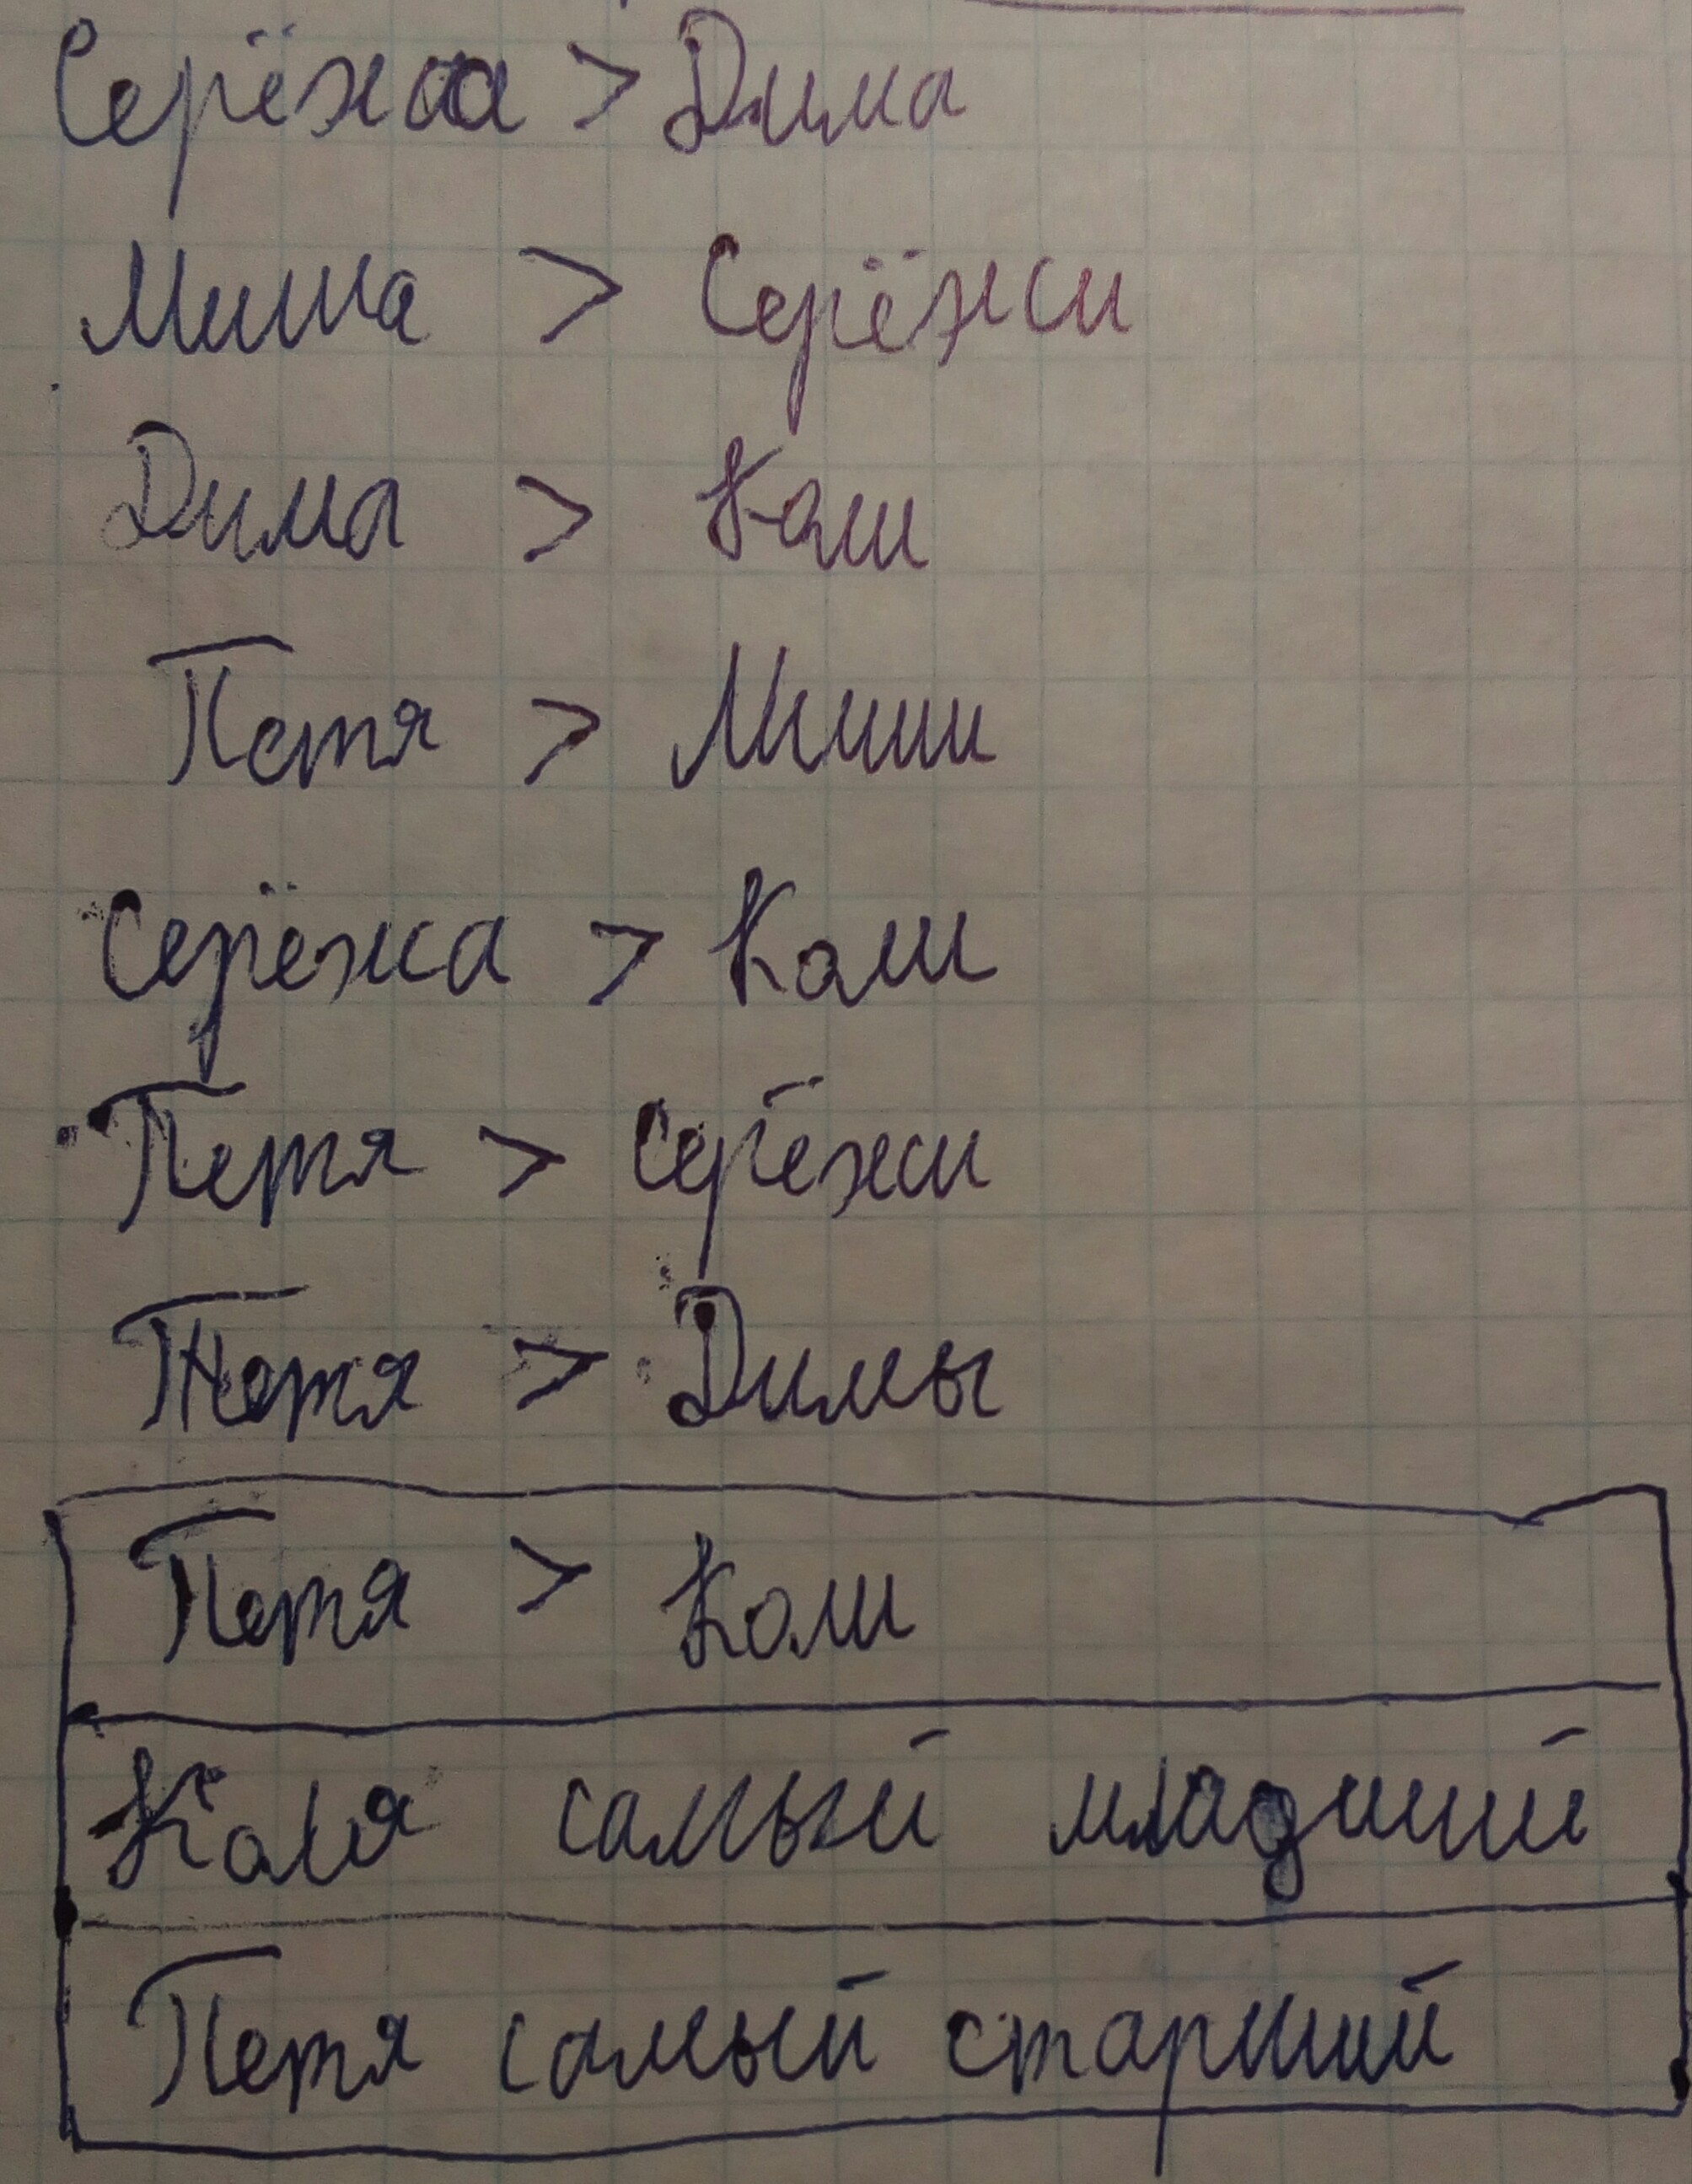 Серёжа > Дима
Миша > Серёжи
Дима > Коли
Петя > Миши
Серёжа > Коли
Петя > Серёжи
Петя > Димы
Петя > Коли
Коля самый младший
Петя самый старший